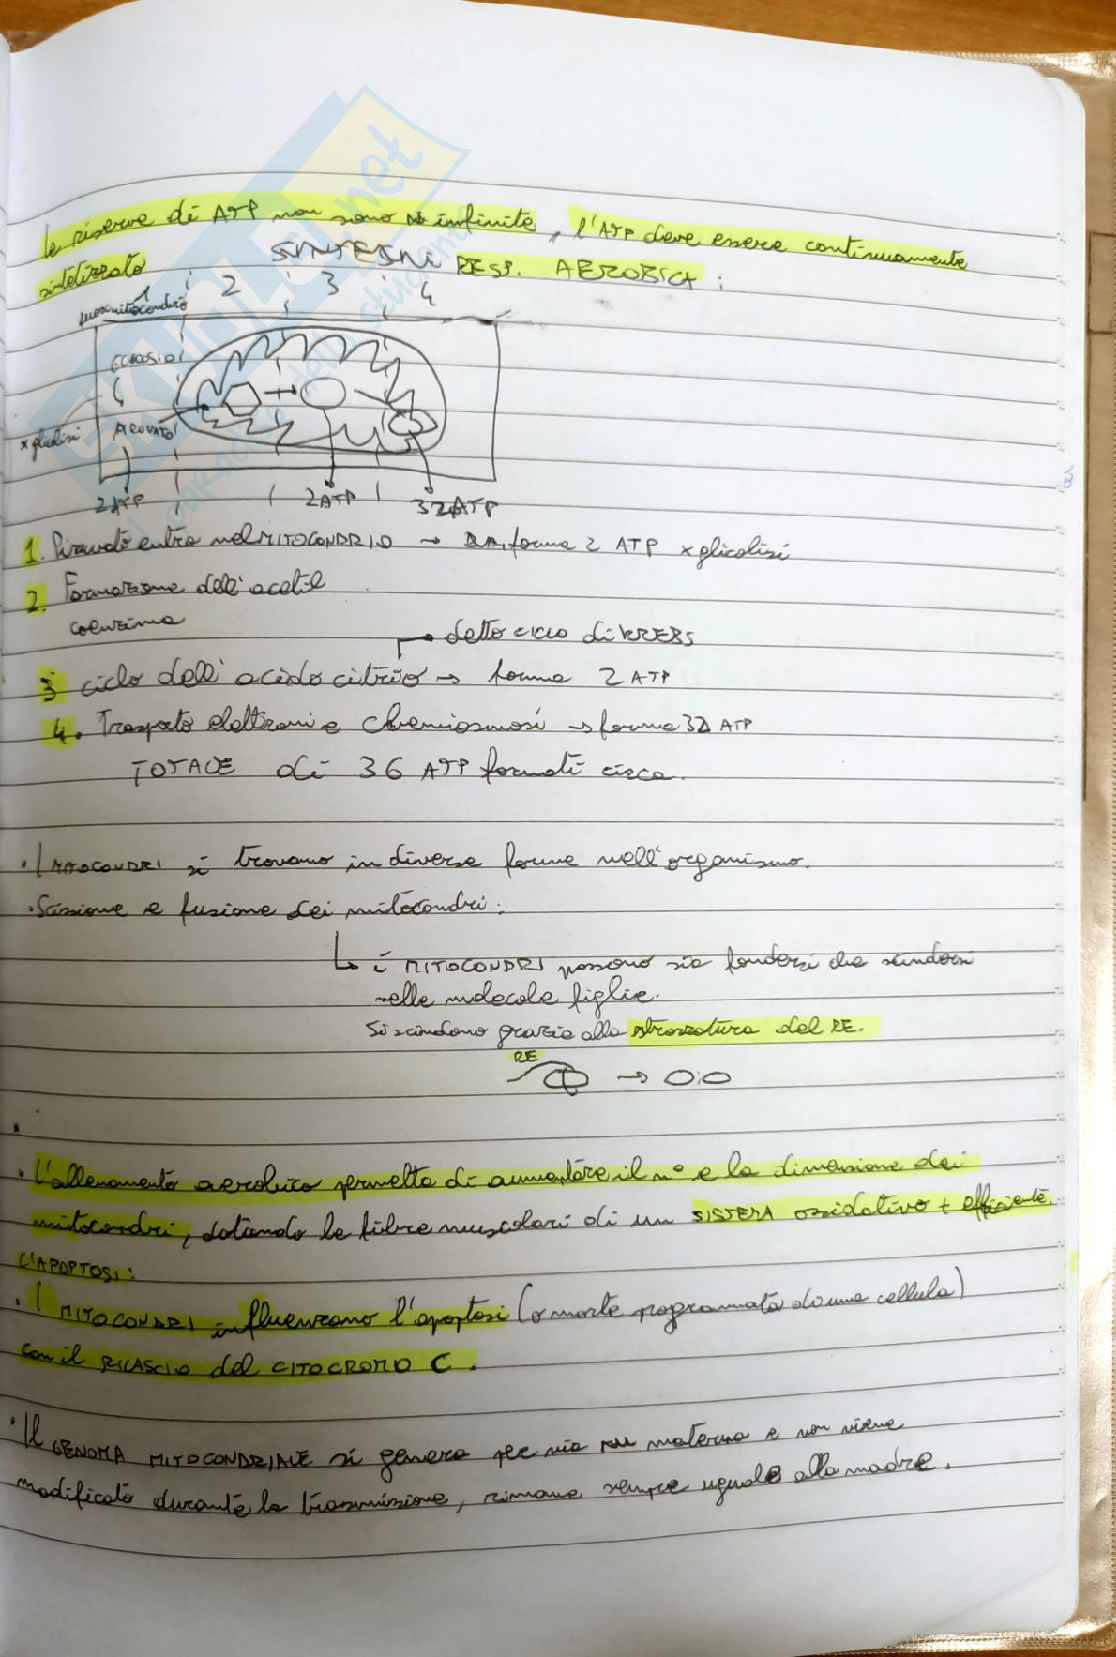 le riserve di ATP non sono infinite, l'ATP deve essere continuamente
sintetizzato SINTESI RESP. AEROBICA :
1 2 3 4
mitocondrio
GLUCOSIO
x glicolisi
PIRUVATO
2 ATP 2 ATP 32 ATP
1. Piruvato entra nel MITOCONDRIO → forma 2 ATP x glicolisi
2. Formazione dell'acetil
coenzima
→ detto ciclo di KREBS
3 ciclo dell'acido citrico → forma 2 ATP
4. Trasporto elettroni e chemiosmosi → forma 32 ATP
TOTALE di 36 ATP formati circa.
• I MITOCONDRI si trovano in diverse forme nell'organismo.
• Scissione e fusione dei mitocondri:
↳ i MITOCONDRI possono sia fondersi che scindersi
nelle molecole figlie.
Si scindono grazie alla strozzatura del RE.
RE
→
• L'allenamento aerobico permette di aumentare il n° e la dimensione dei
mitocondri, dotando le fibre muscolari di un SISTEMA ossidativo + efficiente.
L'APOPTOSI:
• I MITOCONDRI influenzano l'apoptosi (o morte programmata di una cellula)
con il RILASCIO del CITOCROMO C.
• Il GENOMA MITOCONDRIALE si genera per via materna e non viene
modificato durante la trasmissione, rimane sempre uguale alla madre.